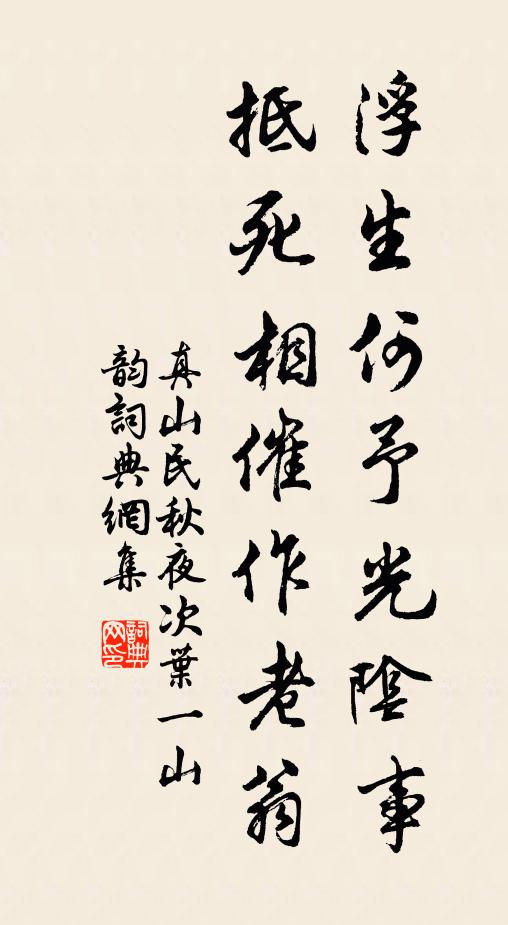 浮生何予光陰事
抵死相催作老翁
真山民秋夜次葉一山
韵詞典網集
詞典
网印